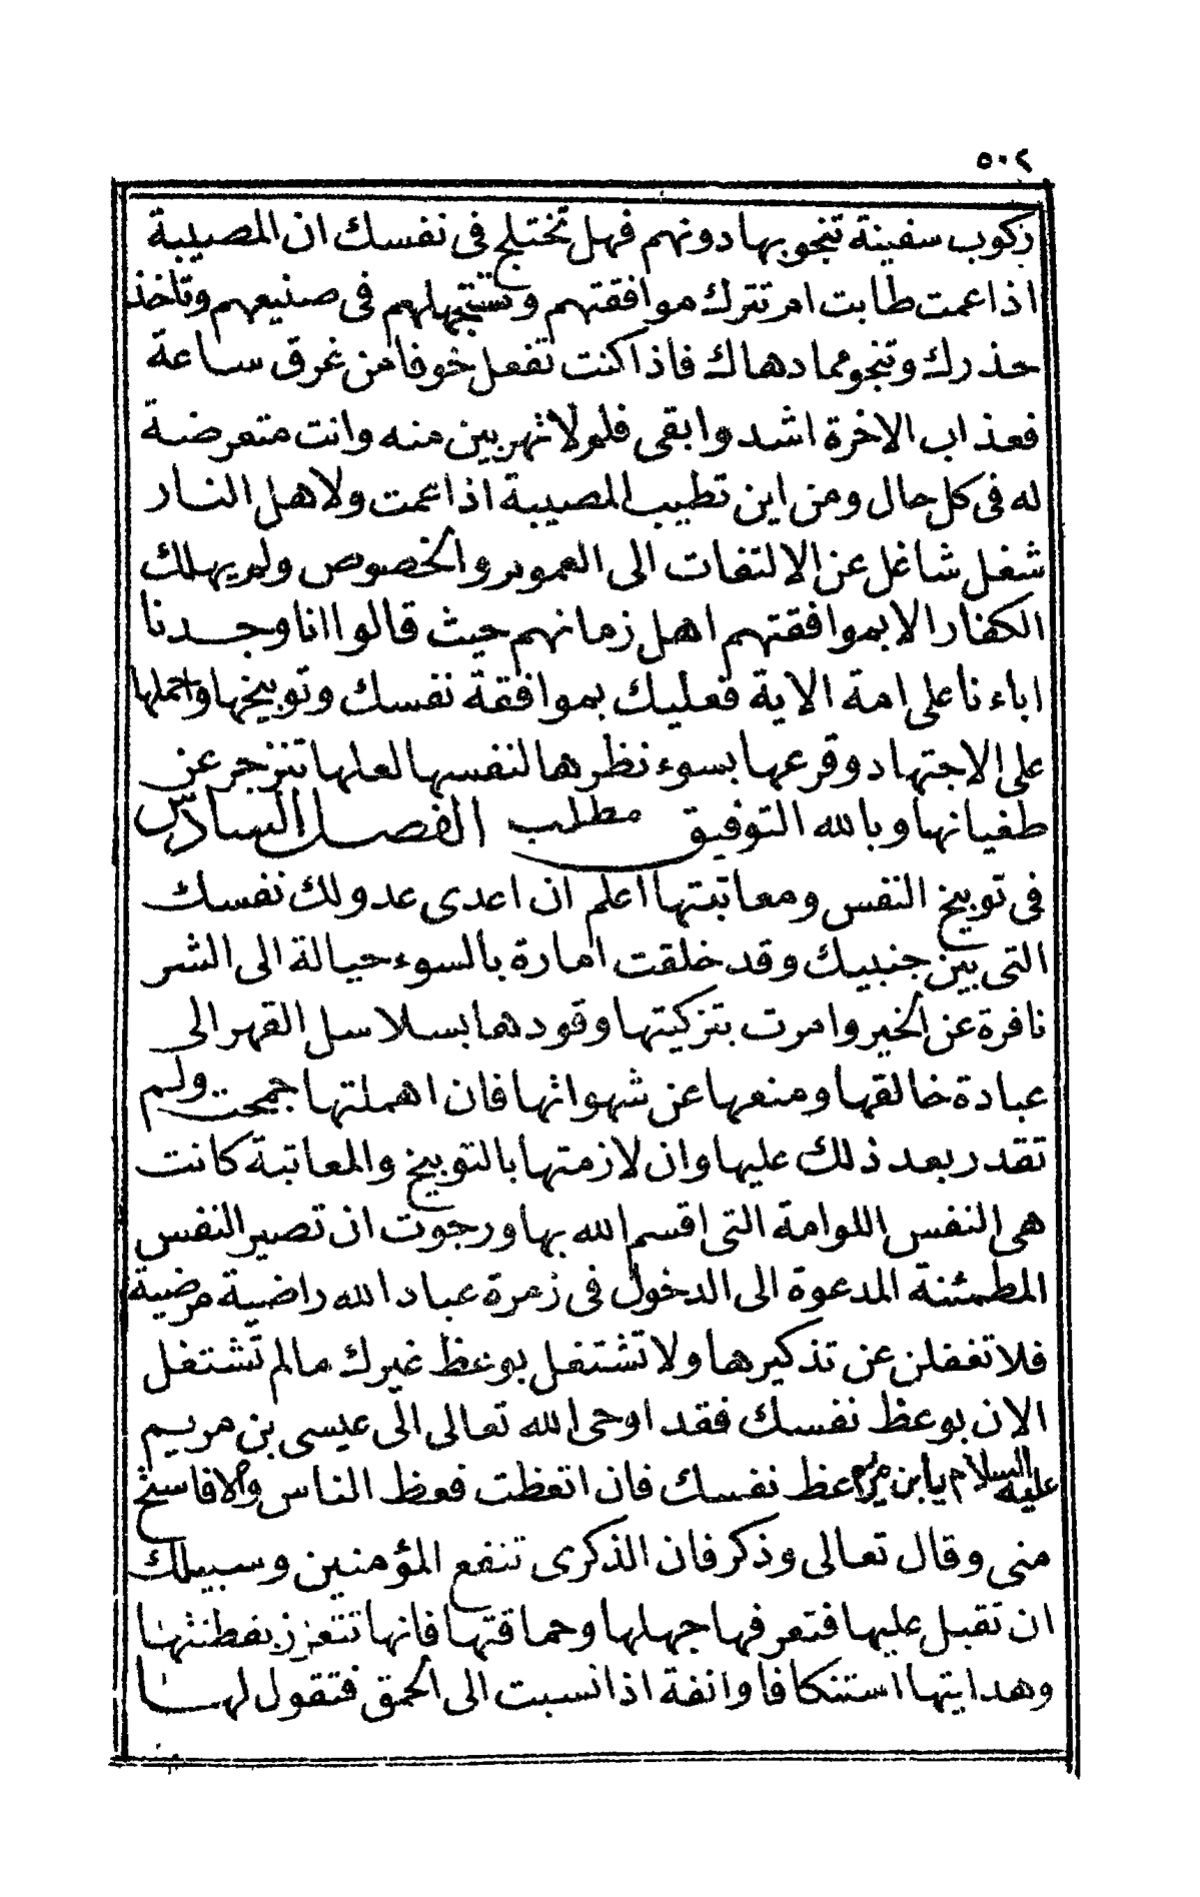 ٥٠٢
ركوب سفينة تنجو بها دونهم فهل تختلج فى نفسك ان المصيبة
اذا عمت طابت ام تترك موافقتهم وتستجهلهم فى صنيعهم وتاخذ
حذرك وتنجو مما دهاك فاذا كنت تفعل خوفا من غرق ساعة
فعذاب الاخرة اشد وابقى فلم لا تهربين منه وانت متعرضة
له فى كل حال ومن اين تطيب المصيبة اذا عمت ولاهل النار
شغل شاغل عن الالتفات الى العموم والخصوص ولم يهلك
الكفار الا بموافقتهم اهل زمانهم حيث قالوا انا وجدنا
اباءنا على امة الاية فعليك بموافقة نفسك وتوبيخها واحملها
على الاجتهاد وقرعها بسوء نظرها لنفسها لعلها تنزجر عن
طغيانها وبالله التوفيق مطلب الفصل السادس
فى توبيخ النفس ومعاتبتها اعلم ان اعدى عدو لك نفسك
التى بين جنبيك وقد خلقت امارة بالسوء حيالة الى الشر
نافرة عن الخير وامرت بتزكيتها وقودها بسلاسل القهر الى
عبادة خالقها ومنعها عن شهواتها فان اهملتها جمحت ولم
تقدر بعد ذلك عليها وان لازمتها بالتوبيخ والمعاتبة كانت
هى النفس اللوامة التى اقسم الله بها ورجوت ان تصير النفس
المطمئنة المدعوة الى الدخول فى زمرة عباد الله راضية مرضية
فلا تغفلن عن تذكيرها ولا تشتغل بوعظ غيرك ما لم تشتغل
الان بوعظ نفسك فقد اوحى الله تعالى الى عيسى بن مريم
عليه السلام يا ابن مريم عظ نفسك فان اتعظت فعظ الناس والا فاستح
منى وقال تعالى وذكر فان الذكرى تنفع المؤمنين وسبيلك
ان تقبل عليها فتعرفها جهلها وحماقتها فانها تتعزز بفطنتها
وهدايتها استنكافا وانفة اذا نسبت الى الحمق فتقول لها